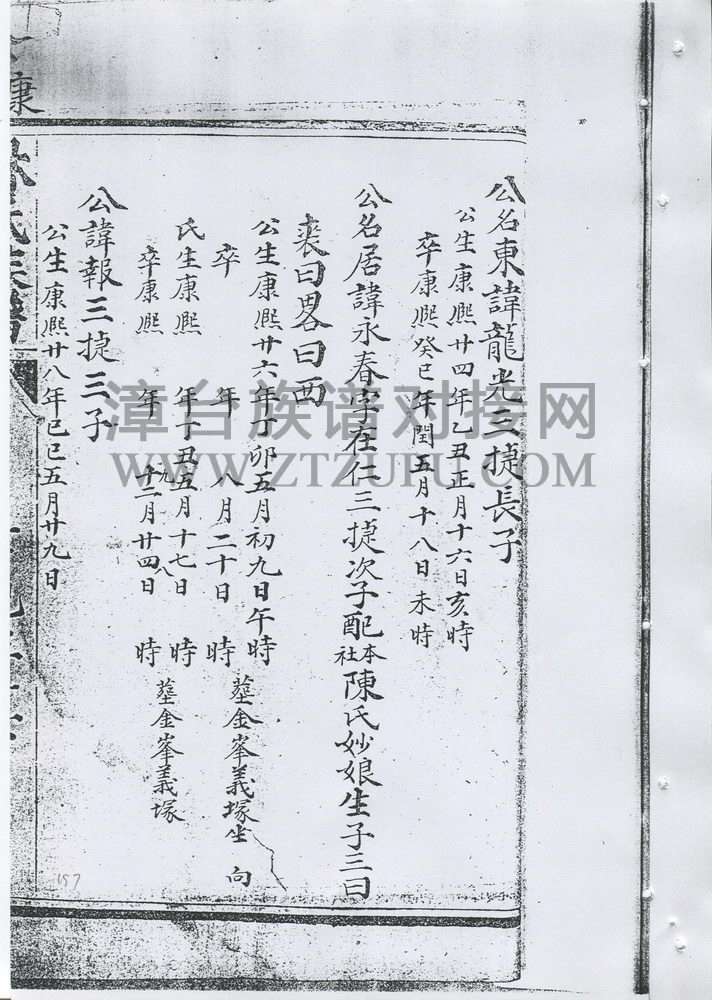 公名東諱龍光三捷長子
公生康熙廿四年乙丑正月十六日亥時
卒康熙癸巳年閏五月十八日未時
公名居諱永春字在仁三捷次子配本社陳氏妙娘生子三曰
裴曰畧曰西
公生康熙廿六年丁卯五月初九日午時
卒 年 八月二十日 時 葬金峯義塚坐 向
氏生康熙 年丁丑五月十七日 時
卒康熙 年 十二月廿四日 時 葬金峯義塚
公諱報三捷三子
公生康熙廿八年己巳五月廿九日
康
氏族譜
漳台族谱对接网
WWW.ZTZUPU.COM
157